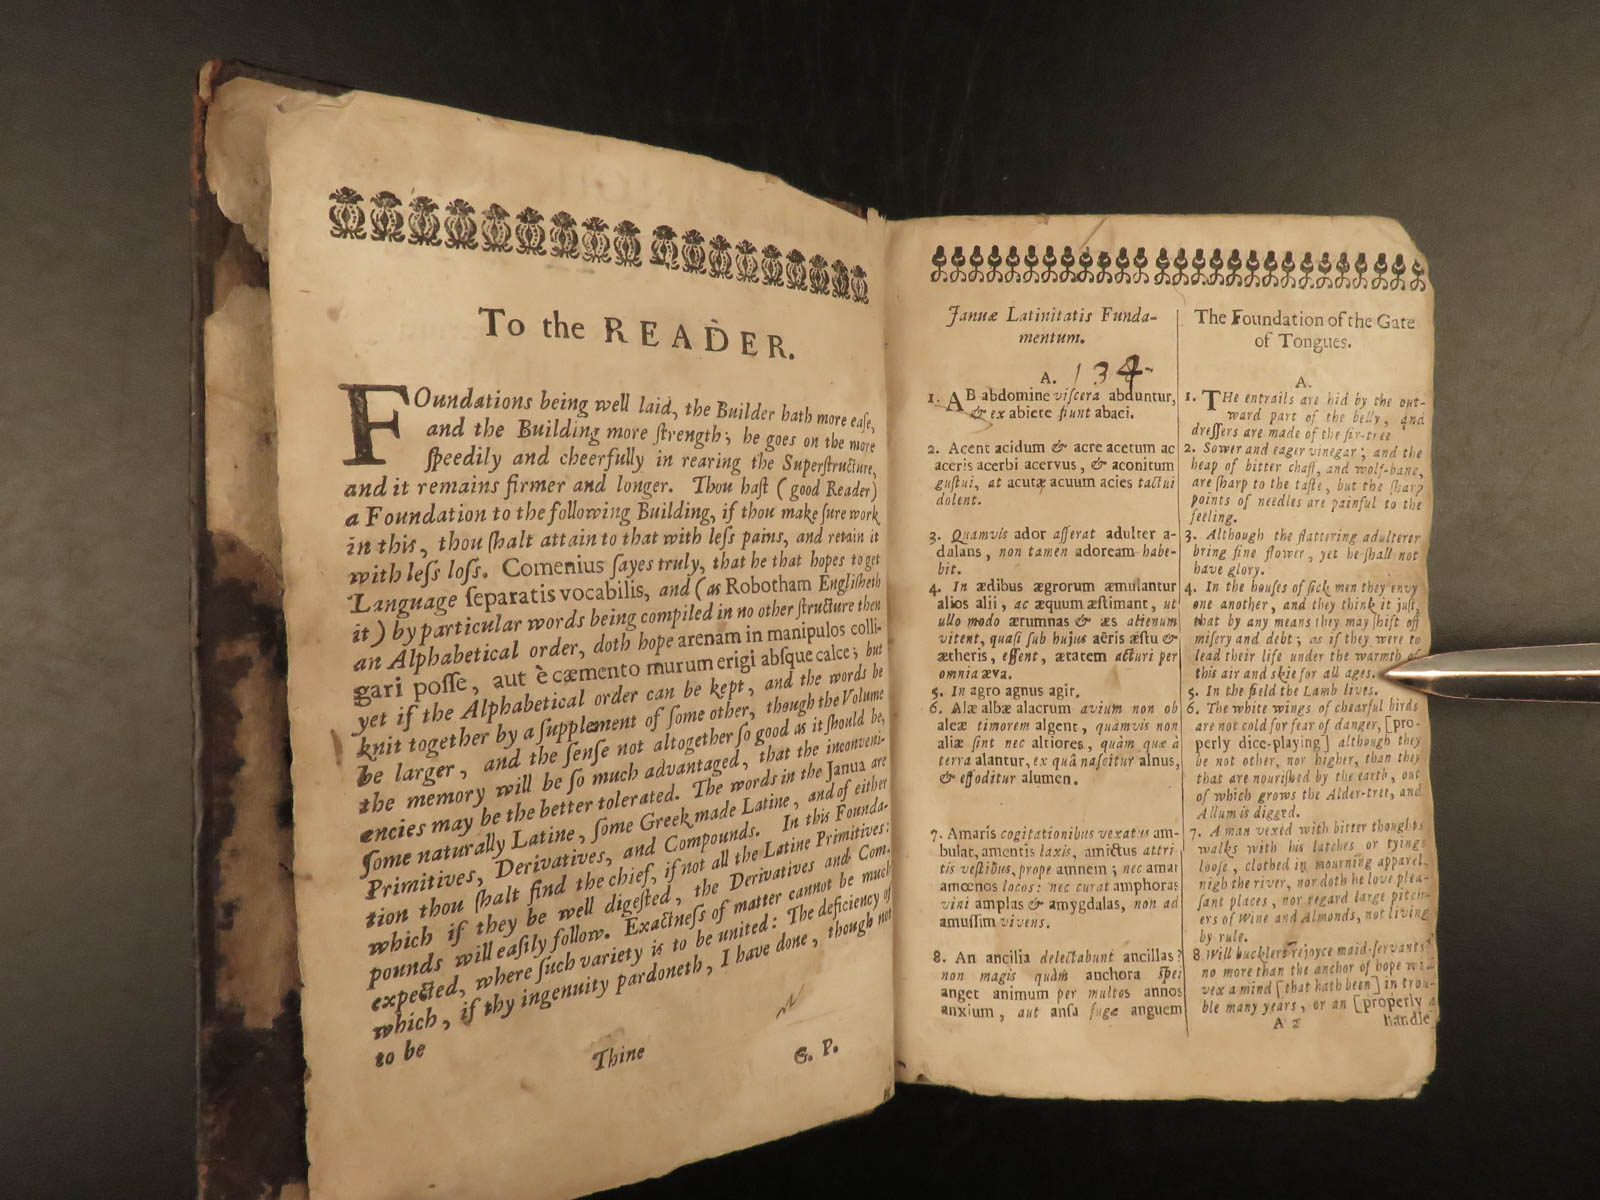 To the READER.
FOundations being well laid, the Builder hath more ease,
and the Building more ſtrength; he goes on the more
ſpeedily and cheerfully in rearing the Superſtructure,
and it remains firmer and longer. Thou haſt (good Reader)
a Foundation to the following Building, if thou make ſure work
in this, thou ſhalt attain to that with leſs pains, and retain it
with leſs loſs. Comenius ſayes truly, that he that hopes to get
Language ſeparatis vocabilis, and (as Robotham Engliſheth
it) by particular words being compiled in no other ſtructure then
an Alphabetical order, doth hope arenam in manipulos colli-
gari poſſe, aut è cæmento murum erigi abſque calce; but
yet if the Alphabetical order can be kept, and the words be
knit together by a ſupplement of ſome other, though the Volume
be larger, and the ſenſe not altogether ſo good as it ſhould be,
the memory will be ſo much advantaged, that the inconveni-
encies may be the better tolerated. The words in the Janua are
ſome naturally Latine, ſome Greek made Latine, and of either
Primitives, Derivatives, and Compounds. In this Founda-
tion thou ſhalt find the chief, if not all the Latine Primitives:
which if they be well digeſted, the Derivatives and Com-
pounds will eaſily follow. Exactneſs of matter cannot be much
expected, where ſuch variety is to be united: The deficiency of
which, if thy ingenuity pardoneth, I have done, though not
to be
Thine G. P.
Januæ Latinitatis Funda-
mentum.
134
A.
1. AB abdomine viſcera abduntur,
& ex abiete fiunt abaci.
2. Acent acidum & acre acetum ac
aceris acerbi acervus, & aconitum
guſtui, at acutæ acuum acies tactui
dolent.
3. Quamvis ador afferat adulter a-
dulans, non tamen adoream habe-
bit.
4. In ædibus ægrorum æmulantur
alios alii, ac æquum æſtimant, ut
ullo modo ærumnas & æs alienum
vitent, quaſi ſub hujus aëris æſtu &
ætheris, eſſent, ætatem acturi per
omnia æva.
5. In agro agnus agit.
6. Alæ albæ alacrum avium non ob
aleæ timorem algent, quamvis non
aliæ ſint nec altiores, quàm quæ à
terra alantur, ex quâ naſcitur alnus,
& effoditur alumen.
7. Amaris cogitationibus vexatus am-
bulat, amentis laxis, amictus attri-
tis veſtibus, prope amnem; nec amat
amœnos locos: nec curat amphoras
vini amplas & amygdalas, non ad
amuſſim vivens.
8. An ancilia delectabunt ancillas?
non magis quàm anchora ſpei
anget animum per multos annos
anxium, aut anſa fugæ anguem
The Foundation of the Gate
of Tongues.
A.
1. THe entrails are hid by the out-
ward part of the belly, and
dreſſers are made of the fir-tree
2. Sower and eager vinegar; and the
heap of bitter chaff, and wolf-bane,
are ſharp to the taſte, but the ſharp
points of needles are painful to the
feeling.
3. Although the flattering adulterer
bring fine flower, yet he ſhall not
have glory.
4. In the houſes of ſick men they envy
one another, and they think it juſt,
that by any means they may ſhift off
miſery and debt; as if they were to
lead their life under the warmth of
this air and skie for all ages.
5. In the field the Lamb lives.
6. The white wings of chearful birds
are not cold for fear of danger, [pro-
perly dice-playing] although they
be not other, nor higher, than they
that are nouriſhed by the earth, out
of which grows the Alder-tree, and
Allum is digged.
7. A man vexed with bitter thoughts
walks with his latches or tyings
looſe, clothed in mourning apparel,
nigh the river, nor doth he love plea-
ſant places, nor regard large pitch-
ers of Wine and Almonds, not living
by rule.
8. Will bucklers rejoyce maid-ſervants?
no more than the anchor of hope will
vex a mind [that hath been] in trou-
ble many years, or an [properly a
A 2 handle